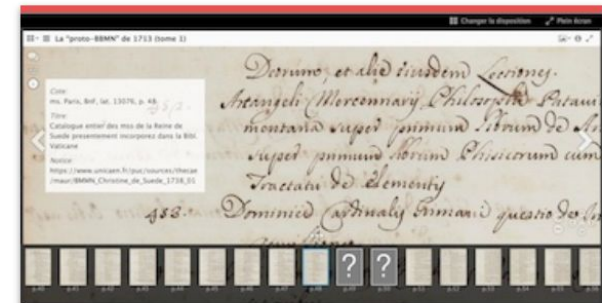 Changer la disposition Plein écran
La "proto-BBMN" de 1713 (tome 1)
Cote:
ms. Paris, BnF, lat. 13076, p. 48
Titre:
Catalogue entier des mss de la Reine de
Suede presentement incorporez dans la Bibl.
Vaticane
Notice:
https://www.unicaen.fr/puc/sources/thecae
/maur/BMMN_Christine_de_Suede_1738_01
et alie eiusdem Lectiones.
Arcangeli Mercennarij Philosophi Pataui
montana super primum librum de
super primum librum Phisicorum cum
Tractatu de Elementis
483. Dominici Cardinalis Grimani questio de
p.40 p.41 p.42 p.43 p.44 p.45 p.46 p.47 p.48 p.49 p.50 p.51 p.52 p.53 p.54 p.55 p.56